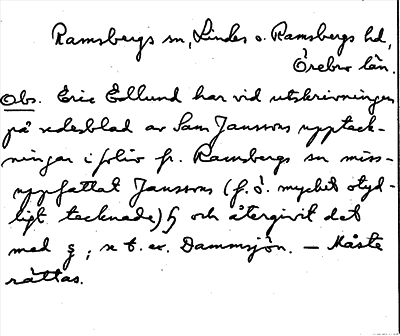 Ramsbergs sn, Lindes o. Ramsbergs hd,
Örebro län.
Obs. Eric Edlund har vid utskrivningen
på sedesblad av Sam Janssons uppteck-
ningar i folio fr. Ramsbergs sn miss-
uppfattat Janssons (f.ö. mycket otyd-
ligt tecknade) ʃ och återgivit det
med ʒ; se t. ex. Dammsjön. — Måste
rättas.